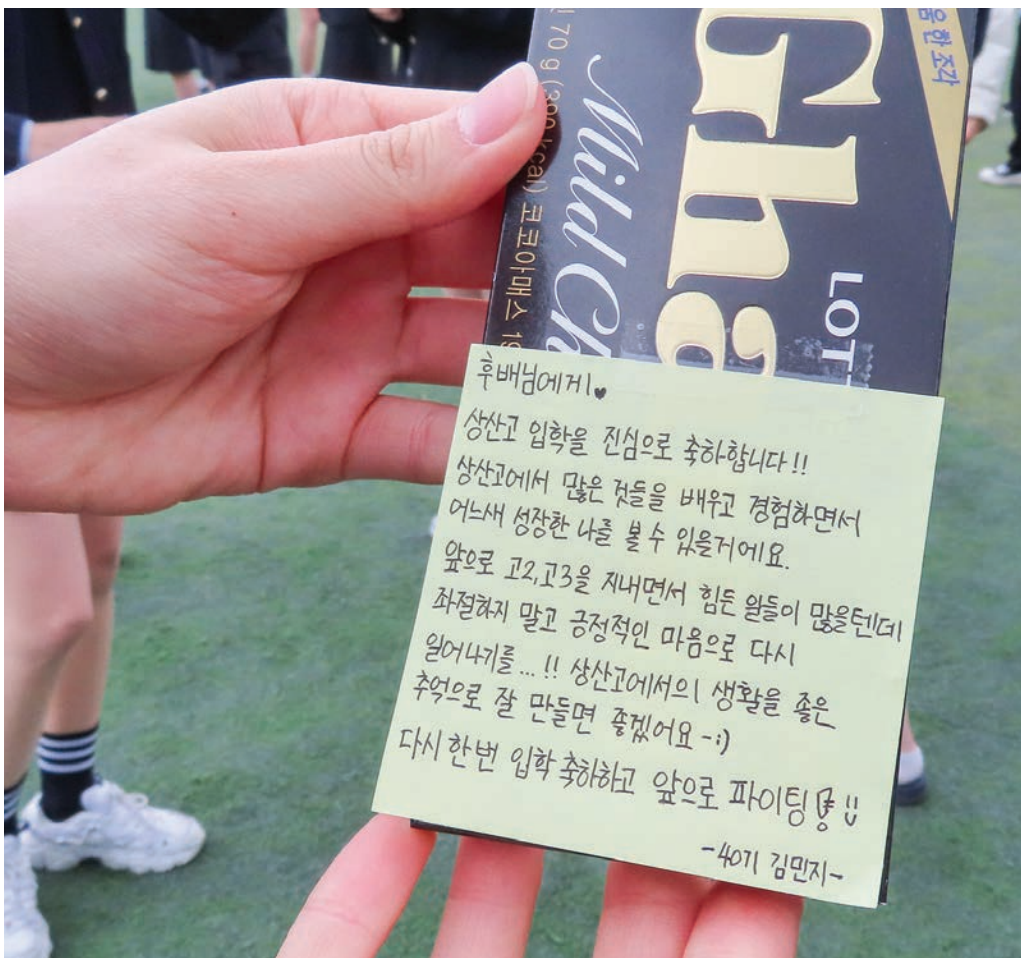 음한 조각
Gha
LOT
Mild Ch
70 g (390 kcal) 코코아매스 19
후배님에게♥
상산고 입학을 진심으로 축하합니다!!
상산고에서 많은 것들을 배우고 경험하면서
어느새 성장한 나를 볼 수 있을거에요.
앞으로 고2,고3을 지내면서 힘든 일들이 많을텐데
좌절하지 말고 긍정적인 마음으로 다시
일어나기를...!! 상산고에서의 생활을 좋은
추억으로 잘 만들면 좋겠어요~:)
다시 한번 입학 축하하고 앞으로 파이팅!!
-40기 김민지-